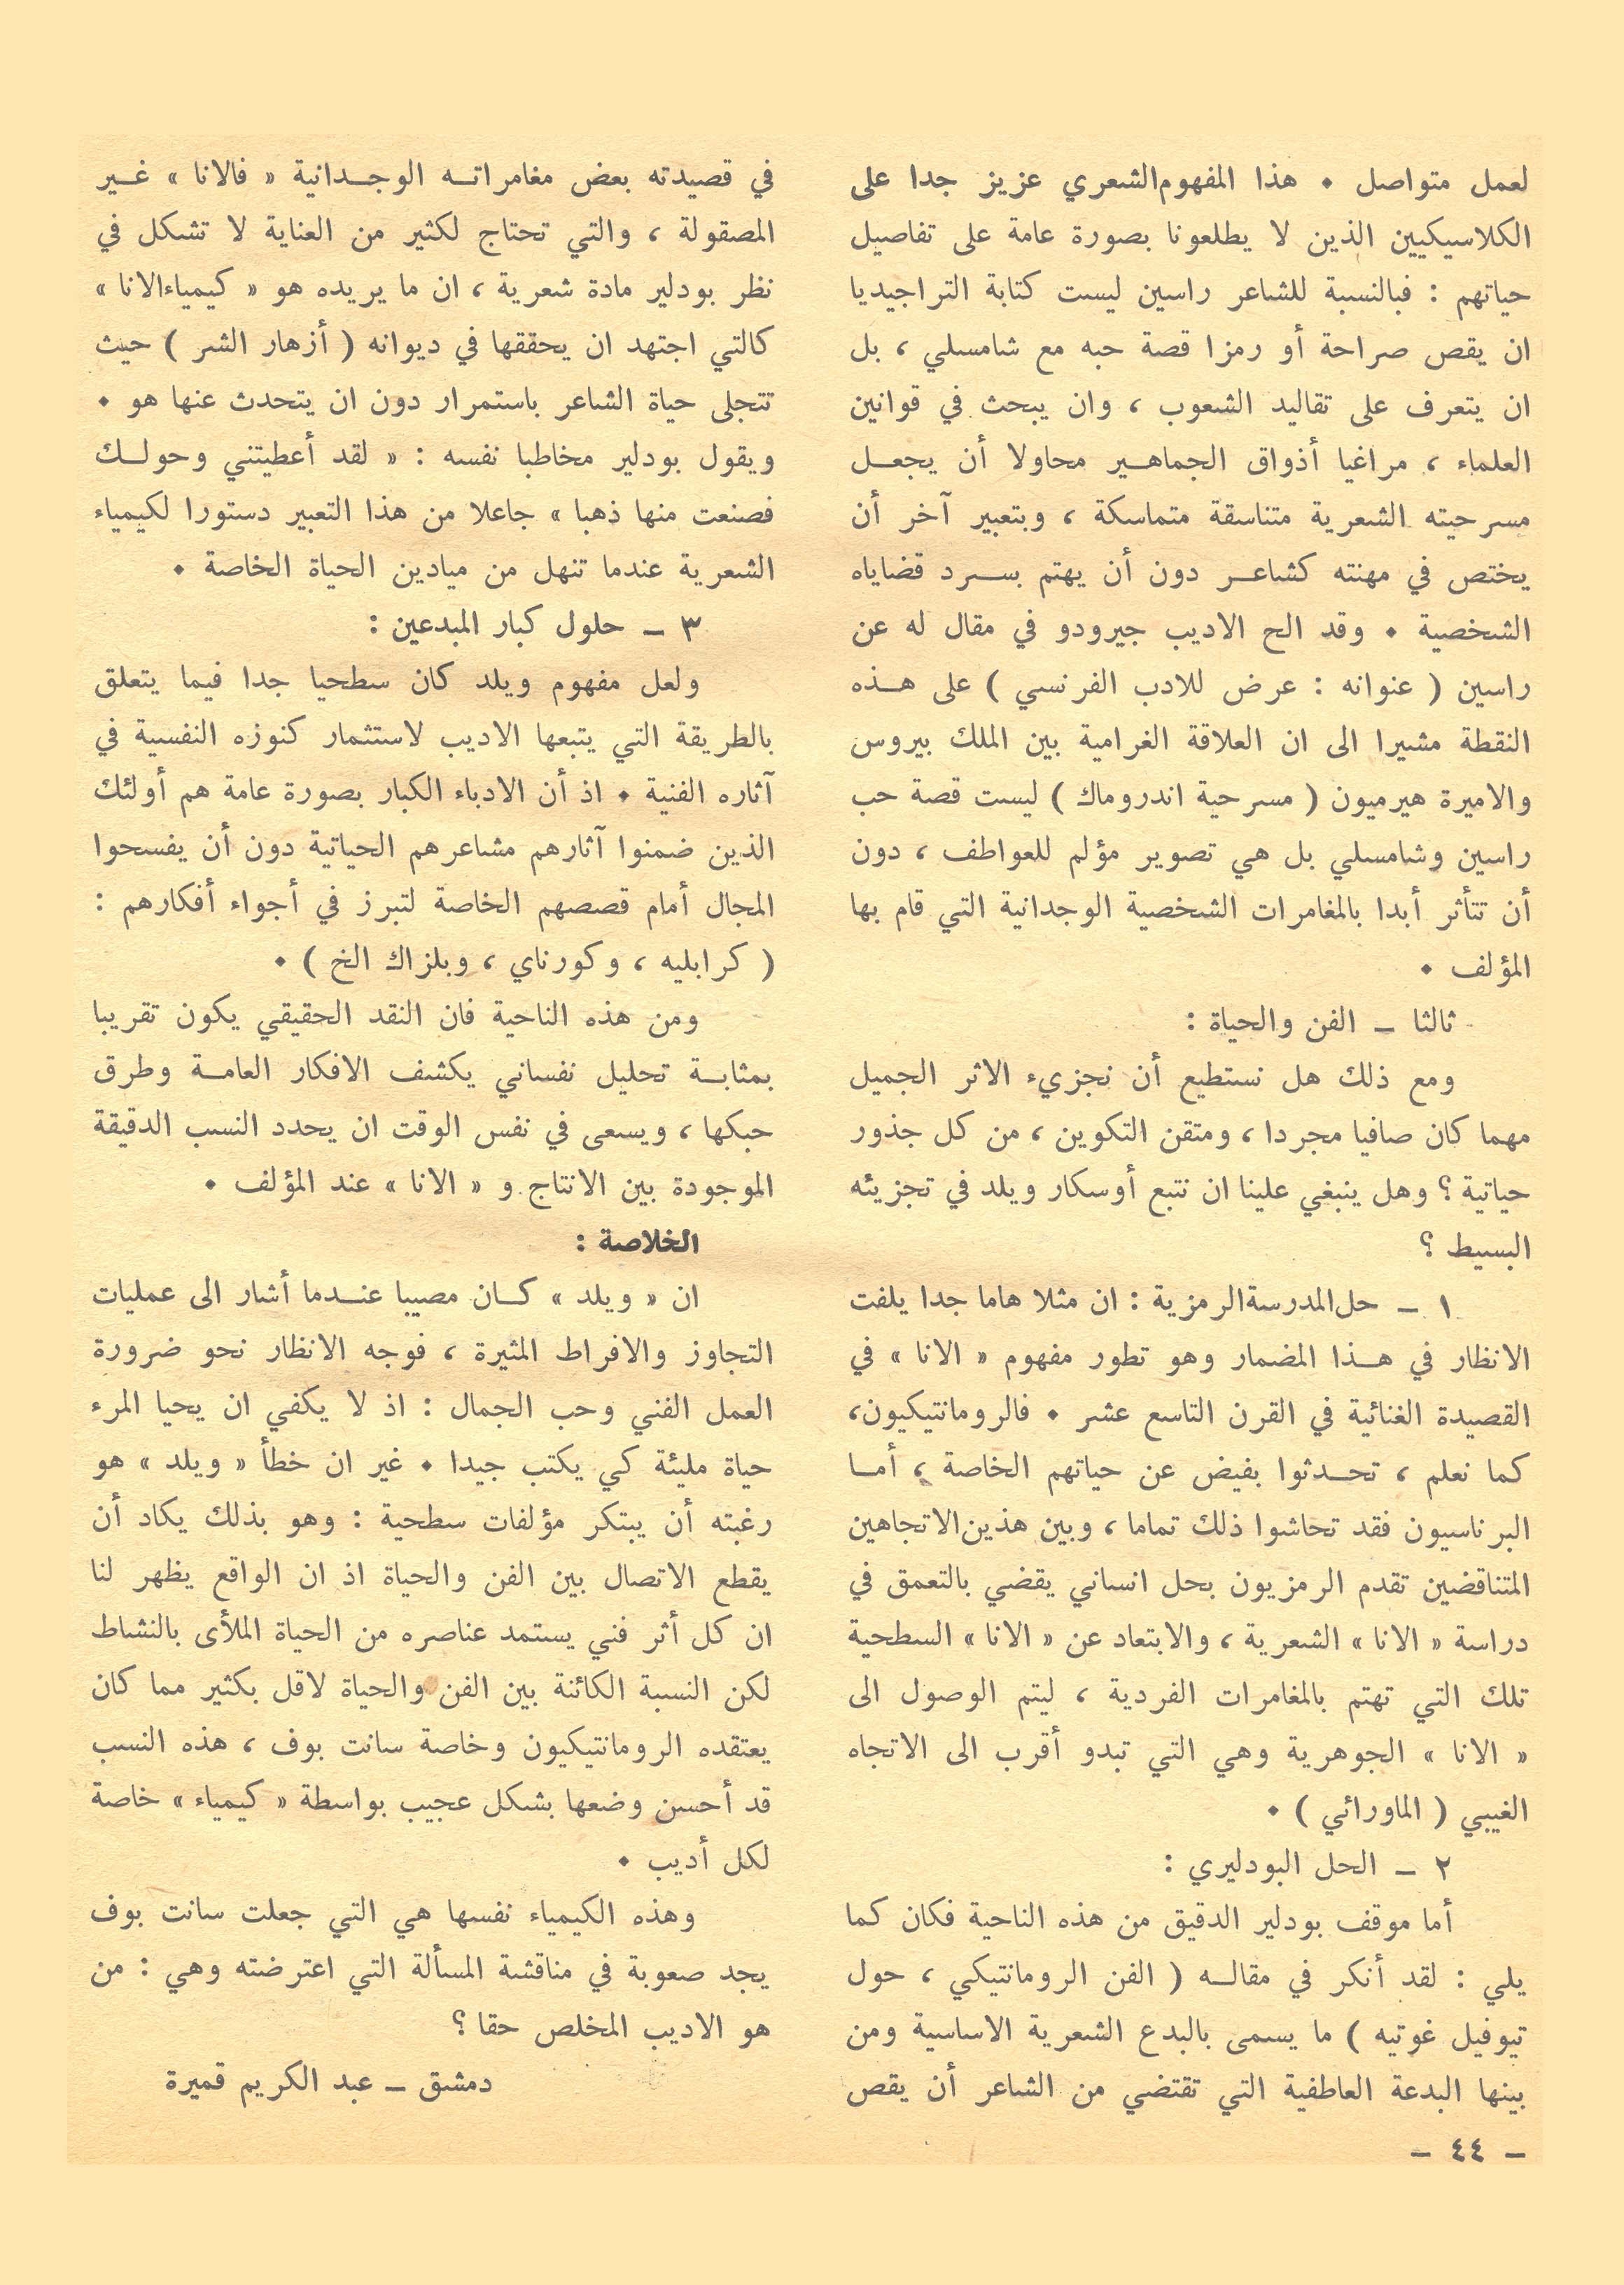 لعمل متواصل ٠ هذا المفهوم الشعري عزيز جدا على
الكلاسيكيين الذين لا يطلعونا بصورة عامة على تفاصيل
حياتهم : فبالنسبة للشاعر راسين ليست كتابة التراجيديا
ان يقص صراحة أو رمزا قصة حبه مع شامسلي ، بل
ان يتعرف على تقاليد الشعوب ، وان يبحث في قوانين
العلماء ، مراغيا أذواق الجماهـير محاولا أن يجعـل
مسرحيته الشعرية متناسقة متماسكة ، وبتعبير آخر أن
يختص في مهنته كشاعـر دون أن يهتم بسـرد قضاياه
الشخصية ٠ وقد الح الاديب جيرودو في مقال له عن
راسين ( عنوانه : عرض للادب الفرنسي ) على هـذه
النقطة مشيرا الى ان العلاقة الغرامية بين الملك بيروس
والاميرة هيرميون ( مسرحية اندروماك ) ليست قصة حب
راسين وشامسلي بل هي تصوير مؤلم للعواطف ، دون
أن تتأثر أبدا بالمغامرات الشخصية الوجدانية التي قام بها
المؤلف ٠
ثالثا ـ الفن والحياة :
ومع ذلك هل نستطيع أن نجزيء الاثر الجميل
مهما كان صافيا مجردا ، ومتقن التكوين ، من كل جذور
حياتية ؟ وهل ينبغي علينا ان نتبع أوسكار ويلد في تجزيئه
البسيط ؟
١ ـ حل المدرسة الرمزية : ان مثلا هاما جدا يلفت
الانظار في هـذا المضمار وهو تطور مفهوم « الانا » في
القصيدة الغنائية في القرن التاسع عشر ٠ فالرومانتيكيون،
كما نعلم ، تحـدثوا بفيض عن حياتهم الخاصة ، أمـا
البرناسيون فقد تحاشوا ذلك تماما ، وبين هذين الاتجاهين
المتناقضين تقدم الرمزيون بحل انساني يقضي بالتعمق في
دراسة « الانا » الشعرية ، والابتعاد عن « الانا » السطحية
تلك التي تهتم بالمغامرات الفردية ، ليتم الوصول الى
« الانا » الجوهرية وهي التي تبدو أقرب الى الاتجاه
الغيبي ( الماورائي ) ٠
٢ ـ الحل البودليري :
أما موقف بودلير الدقيق من هذه الناحية فكان كما
يلي : لقد أنكر في مقالـه ( الفن الرومانتيكي ، حول
تيوفيل غوتيه ) ما يسمى بالبدع الشعرية الاساسية ومن
بينها البدعة العاطفية التي تقتضي من الشاعر أن يقص
في قصيدته بعض مغامراتـه الوجـدانية « فالانا » غـير
المصقولة ، والتي تحتاج لكثير من العناية لا تشكل في
نظر بودلير مادة شعرية ، ان ما يريده هو « كيمياء الانا »
كالتي اجتهد ان يحققها في ديوانه ( أزهار الشر ) حيث
تتجلى حياة الشاعر باستمرار دون ان يتحدث عنها هو ٠
ويقول بودلير مخاطبا نفسه : « لقد أعطيتني وحولـك
فصنعت منها ذهبا » جاعلا من هذا التعبير دستورا لكيمياء
الشعرية عندما تنهل من ميادين الحياة الخاصة ٠
٣ ـ حلول كبار المبدعين :
ولعل مفهوم ويلد كان سطحيا جدا فيما يتعلق
بالطريقة التي يتبعها الاديب لاستثمار كنوزه النفسية في
آثاره الفنية ٠ اذ أن الادباء الكبار بصورة عامة هم أولئك
الذين ضمنوا آثارهم مشاعرهم الحياتية دون أن يفسحوا
المجال أمام قصصهم الخاصة لتبرز في أجواء أفكارهم :
( كرابليه ، وكورناي ، وبلزاك الخ ) ٠
ومن هذه الناحية فان النقد الحقيقي يكون تقريبا
بمثابـة تحليل نفساني يكشف الافكار العامـة وطرق
حبكها ، ويسعى في نفس الوقت ان يحدد النسب الدقيقة
الموجودة بين الانتاج و « الانا » عند المؤلف ٠
الخلاصة :
ان « ويلد » كـان مصيبا عنـدما أشار الى عمليات
التجاوز والافراط المثيرة ، فوجه الانظار نحو ضرورة
العمل الفني وحب الجمال : اذ لا يكفي ان يحيا المرء
حياة مليئة كي يكتب جيدا ٠ غير ان خطأ « ويلد » هو
رغبته أن يبتكر مؤلفات سطحية : وهو بذلك يكاد أن
يقطع الاتصال بين الفن والحياة اذ ان الواقع يظهر لنا
ان كل أثر فني يستمد عناصره من الحياة الملأى بالنشاط
لكن النسبة الكائنة بين الفن والحياة لاقل بكثير مما كان
يعتقده الرومانتيكيون وخاصة سانت بوف ، هذه النسب
قد أحسن وضعها بشكل عجيب بواسطة « كيمياء » خاصة
لكل أديب ٠
وهذه الكيمياء نفسها هي التي جعلت سانت بوف
يجد صعوبة في مناقشة المسألة التي اعترضته وهي : من
هو الاديب المخلص حقا ؟
دمشق ـ عبد الكريم قميرة
ـ ٤٤ ـ